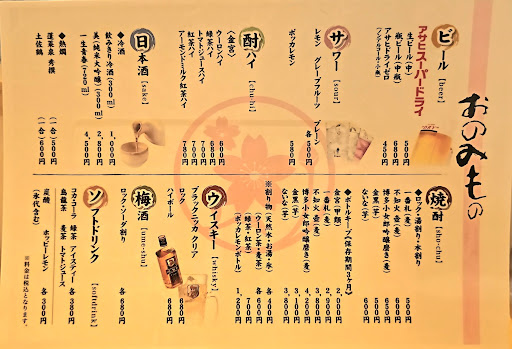 おのみもの
ビール【beer】
アサヒスーパードライ
生ビール(中) 500円
瓶ビール(中瓶) 680円
アサヒドライゼロ 450円
(ノンアルコール・小瓶)
サワー【sour】
レモン グレープフルーツ プレーン 各500円
ポッカレモン 580円
酎ハイ【chuhi】
《金宮》
ウーロンハイ 600円
緑茶ハイ 600円
トマトジュースハイ 700円
紅茶ハイ 700円
アーモンドミルク紅茶ハイ 700円
日本酒【sake】
◆冷酒
飲みきり冷酒(300ml) 1,000円
美(純米大吟醸)(300ml) 2,800円
一生青春(720ml) 4,500円
◆熱燗
蓬莱泉 秀撰 (一合)500円
土佐鶴 (一合)600円
焼酎【sho-chu】
◆ロック・湯割り・水割り
一番札(麦) 500円
不知火(麦) 500円
博多小女郎吟醸磨き(麦) 650円
金黒(芋) 500円
ないな(芋) 600円
◆ボトルキープ(保存期間3ヶ月)
金宮(甲類) 2,000円
一番札(麦) 2,800円
不知火 壺(麦) 2,900円
博多小女郎吟醸磨き(麦) 4,200円
金黒(芋) 3,100円
ないな(芋) 3,800円
※割り物(天然水・お湯・氷) 各400円
(ウーロン茶・麦茶) 各600円
(緑茶・紅茶) 700円
(ポッカレモンボトル) 1,200円
ウイスキー【whisky】
ブラックニッカ クリア
ロック 680円
ハイボール 680円
梅酒【ume-chu】
ロック・ソーダ割り 各680円
ソフトドリンク【softdrink】
コカ・コーラ 緑茶 アイスティー
烏龍茶 麦茶 トマトジュース 各380円
炭酸 ホッピーレモン 各300円
(氷代含む)
※料金は税込となります。